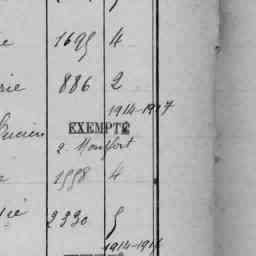 1695 4
rie 886 2
1914-1917
Lucien EXEMPTÉ
2. Montfort
1998 4
2330 5
1914-1918